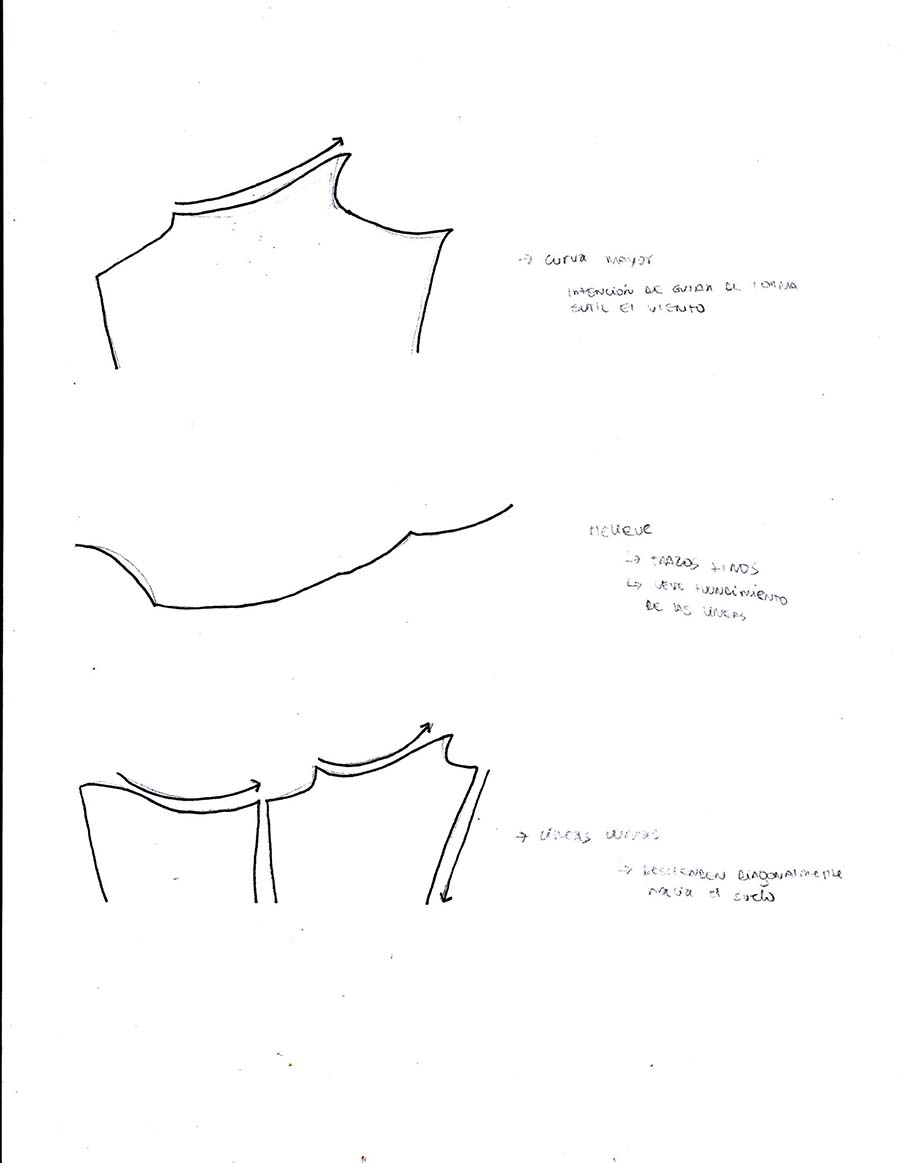 → curva mayor
INTENCIÓN DE GUIAR DE FORMA
SUTIL El VIENTO
RELIEVE
↳ TRAZOS FINOS
↳ LEVE HUNDIMIENTO
DE LAS LÍNEAS
→ LÍNEAS CURVAS
→ DESCIENDEN DIAGONALMENTE
HACIA El suelo